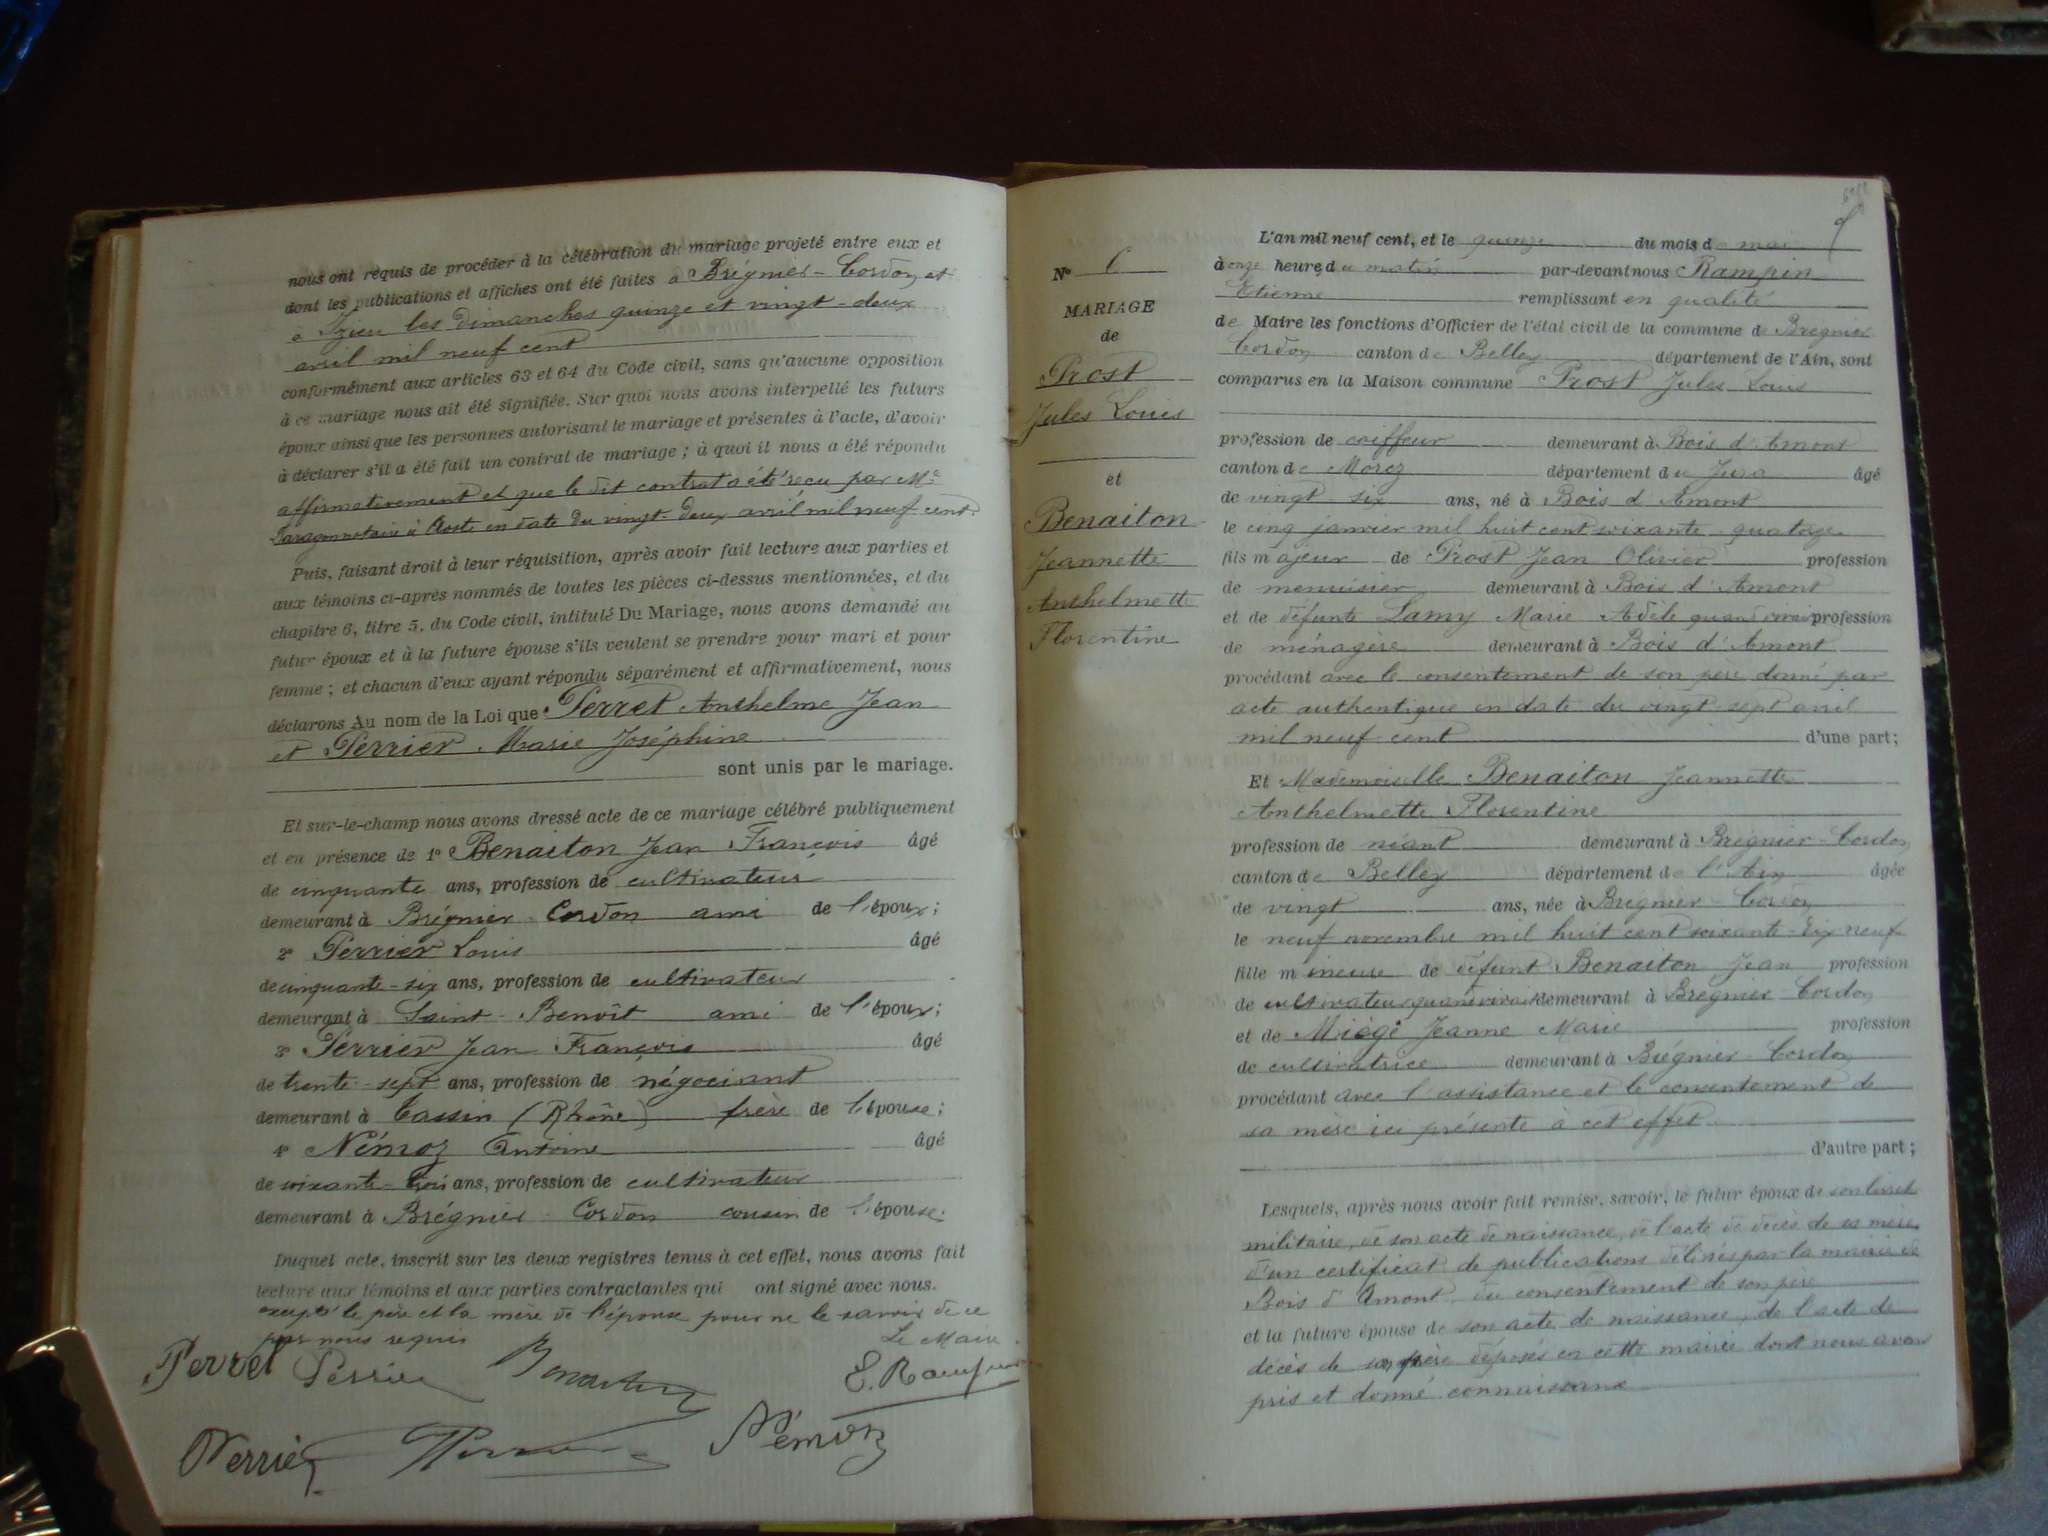 nous ont requis de procéder à la célébration du mariage projeté entre eux et
dont les publications et affiches ont été faites à Brégnier-Cordon, et
à Izieu les dimanches quinze et vingt-deux
avril mil neuf cent
conformément aux articles 63 et 64 du Code civil, sans qu'aucune opposition
à ce mariage nous ait été signifiée. Sur quoi nous avons interpellé les futurs
époux ainsi que les personnes autorisant le mariage et présentes à l'acte, d'avoir
à déclarer s'il a été fait un contrat de mariage ; à quoi il nous a été répondu
affirmativement et que le dit contrat a été reçu par Me
notaire à Aoste en date du vingt-deux avril mil neuf cent.
Puis, faisant droit à leur réquisition, après avoir fait lecture aux parties et
aux témoins ci-après nommés de toutes les pièces ci-dessus mentionnées, et du
chapitre 6, titre 5, du Code civil, intitulé Du Mariage, nous avons demandé au
futur époux et à la future épouse s'ils veulent se prendre pour mari et pour
femme ; et chacun d'eux ayant répondu séparément et affirmativement, nous
déclarons Au nom de la Loi que Perret Anthelme Jean
et Perrier Marie Joséphine
sont unis par le mariage.
Et sur-le-champ nous avons dressé acte de ce mariage célébré publiquement
et en présence de 1° Benaiton Jean François âgé
de cinquante ans, profession de cultivateur
demeurant à Brégnier-Cordon ami de l'époux;
2° Perrier Louis âgé
de cinquante-six ans, profession de cultivateur
demeurant à Saint-Benoît ami de l'époux;
3° Perrier Jean François âgé
de trente-sept ans, profession de négociant
demeurant à Tassin (Rhône) frère de l'épouse;
4° Némoz Antoine âgé
de soixante-trois ans, profession de cultivateur
demeurant à Brégnier-Cordon cousin de l'épouse.
Duquel acte, inscrit sur les deux registres tenus à cet effet, nous avons fait
lecture aux témoins et aux parties contractantes qui ont signé avec nous.
excepté le père et la mère de l'épouse pour ne le savoir de ce
par nous requis
Le Maire
Perret Perrier Benaiton E. Rampin
Perrier Perrier Némoz
7
N° 6
MARIAGE
de
Prost
Jules Louis
et
Benaiton
Jeannette
Anthelmette
Florentine
L'an mil neuf cent, et le quinze du mois de mai
à onze heures du matin par-devant nous Rampin
Etienne remplissant en qualité
de Maire les fonctions d'Officier de l'état civil de la commune de Brégnier
Cordon canton de Belley département de l'Ain, sont
comparus en la Maison commune Prost Jules Louis
profession de coiffeur demeurant à Bois d'Amont
canton de Morez département du Jura âgé
de vingt-six ans, né à Bois d'Amont
le cinq janvier mil huit cent soixante-quatorze
fils majeur de Prost Jean Olivier profession
de menuisier demeurant à Bois d'Amont
et de défunte Lamy Marie Adèle quand vivait profession
de ménagère demeurant à Bois d'Amont
procédant avec le consentement de son père donné par
acte authentique en date du vingt sept avril
mil neuf cent d'une part;
Et Mademoiselle Benaiton Jeannette
Anthelmette Florentine
profession de néant demeurant à Brégnier-Cordon
canton de Belley département de l'Ain âgée
de vingt ans, née à Brégnier-Cordon
le neuf novembre mil huit cent soixante-dix neuf
fille mineure de défunt Benaiton Jean profession
de cultivateur quand vivait demeurant à Brégnier-Cordon
et de Miège Jeanne Marie profession
de cultivatrice demeurant à Brégnier-Cordon
procédant avec l'assistance et le consentement de
sa mère ici présente à cet effet
d'autre part ;
Lesquels, après nous avoir fait remise, savoir, le futur époux de son livret
militaire, de son acte de naissance, de l'acte de décès de sa mère
d'un certificat de publications délivrés par la mairie de
Bois d'Amont du consentement de son père
et la future épouse de son acte de naissance, de l'acte de
décès de son père déposés en cette mairie dont nous avons
pris et donné connaissance